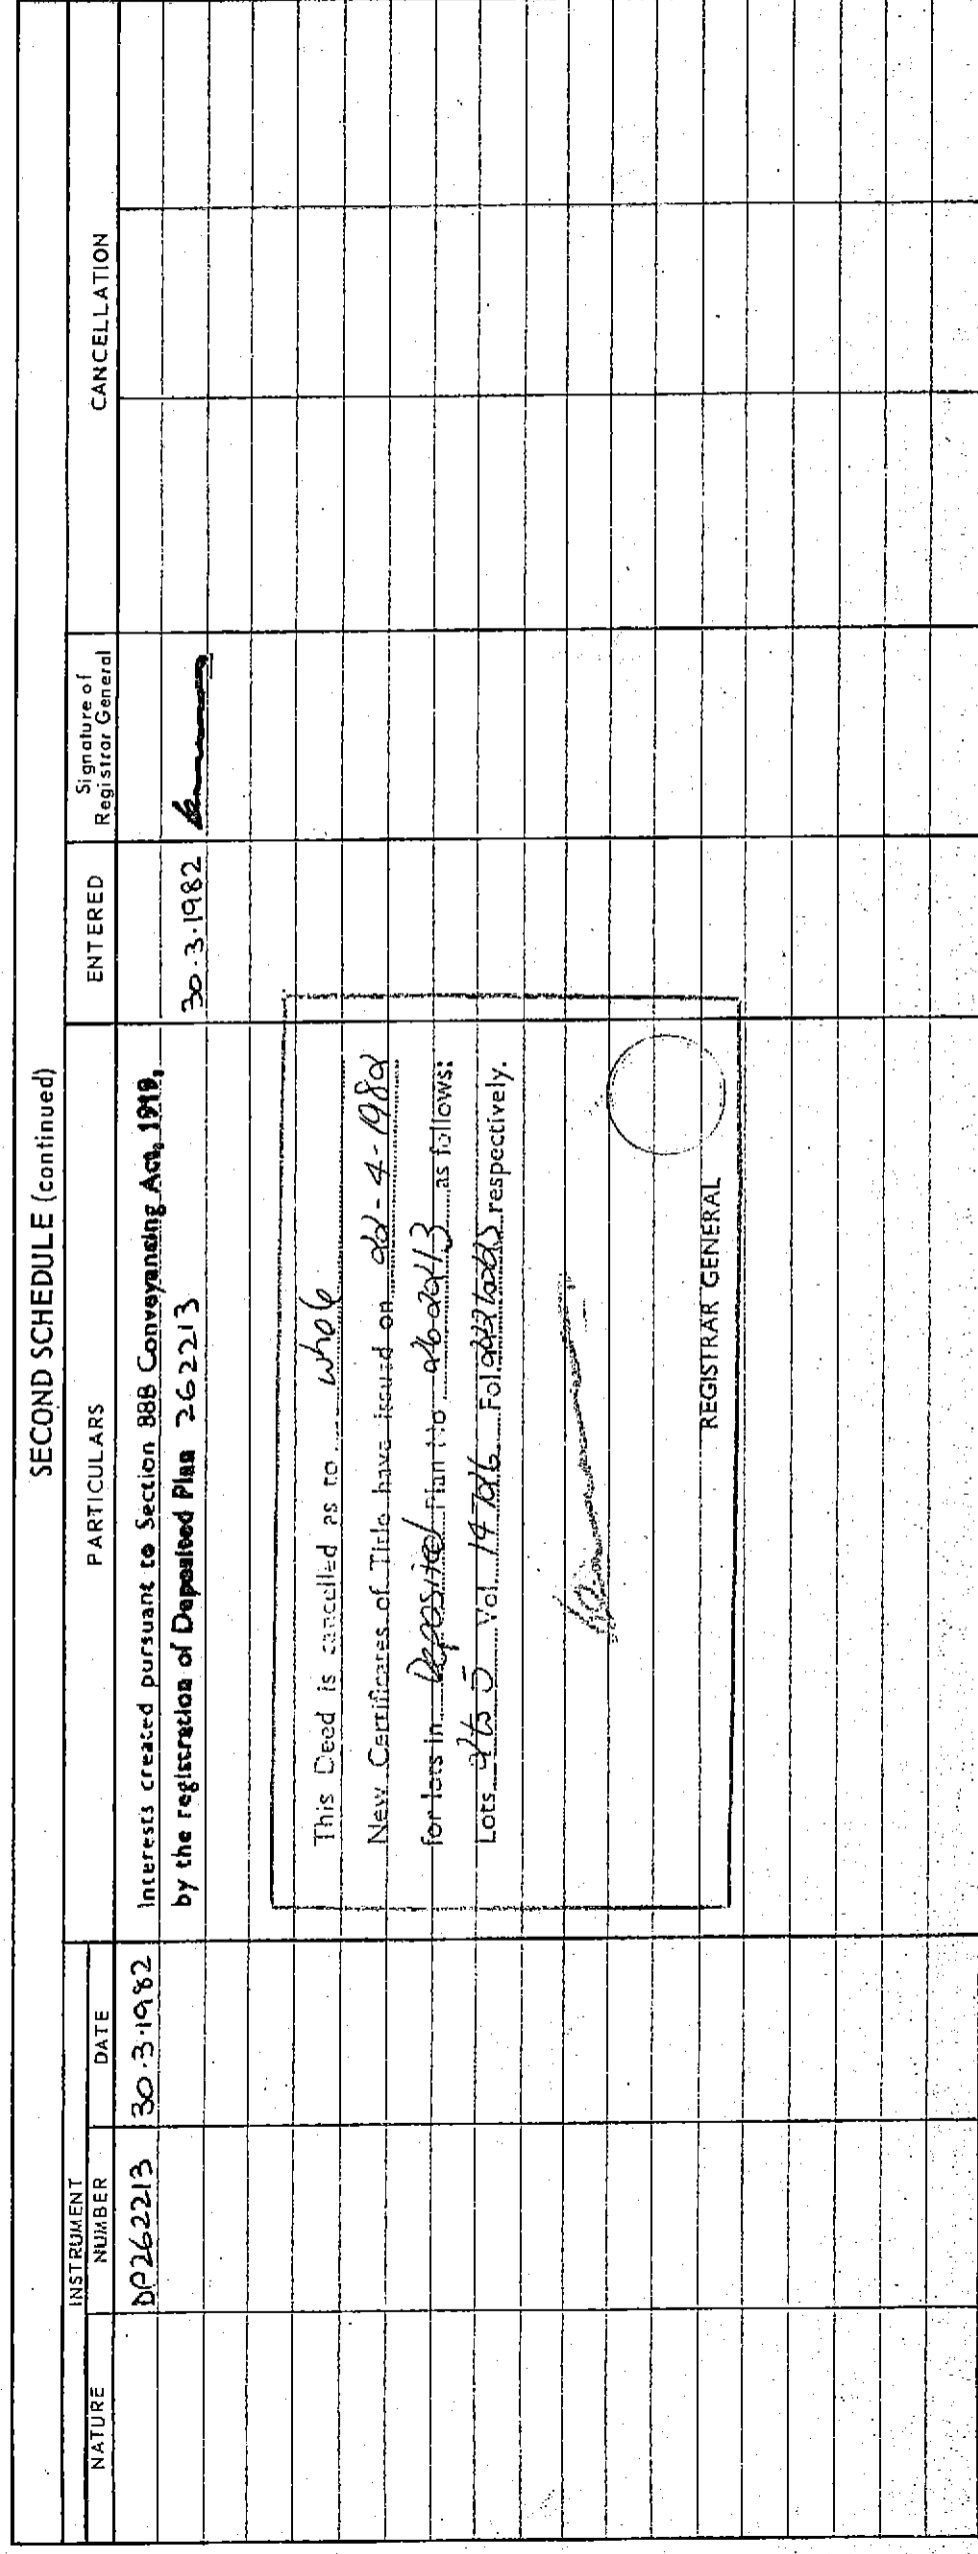 SECOND SCHEDULE (continued)
INSTRUMENT
NATURE NUMBER DATE PARTICULARS ENTERED Signature of Registrar General CANCELLATION
DP262213 30.3.1982 Interests created pursuant to Section 88B Conveyancing Act, 1919,
by the registration of Deposited Plan 262213 30.3.1982
This Deed is cancelled as to whole
New Certificates of Title have issued on 22-4-1982
for lots in Deposited Plan No 262213 as follows:
Lots 2 to 5 Vol. 14726 Fol. respectively.
REGISTRAR GENERAL